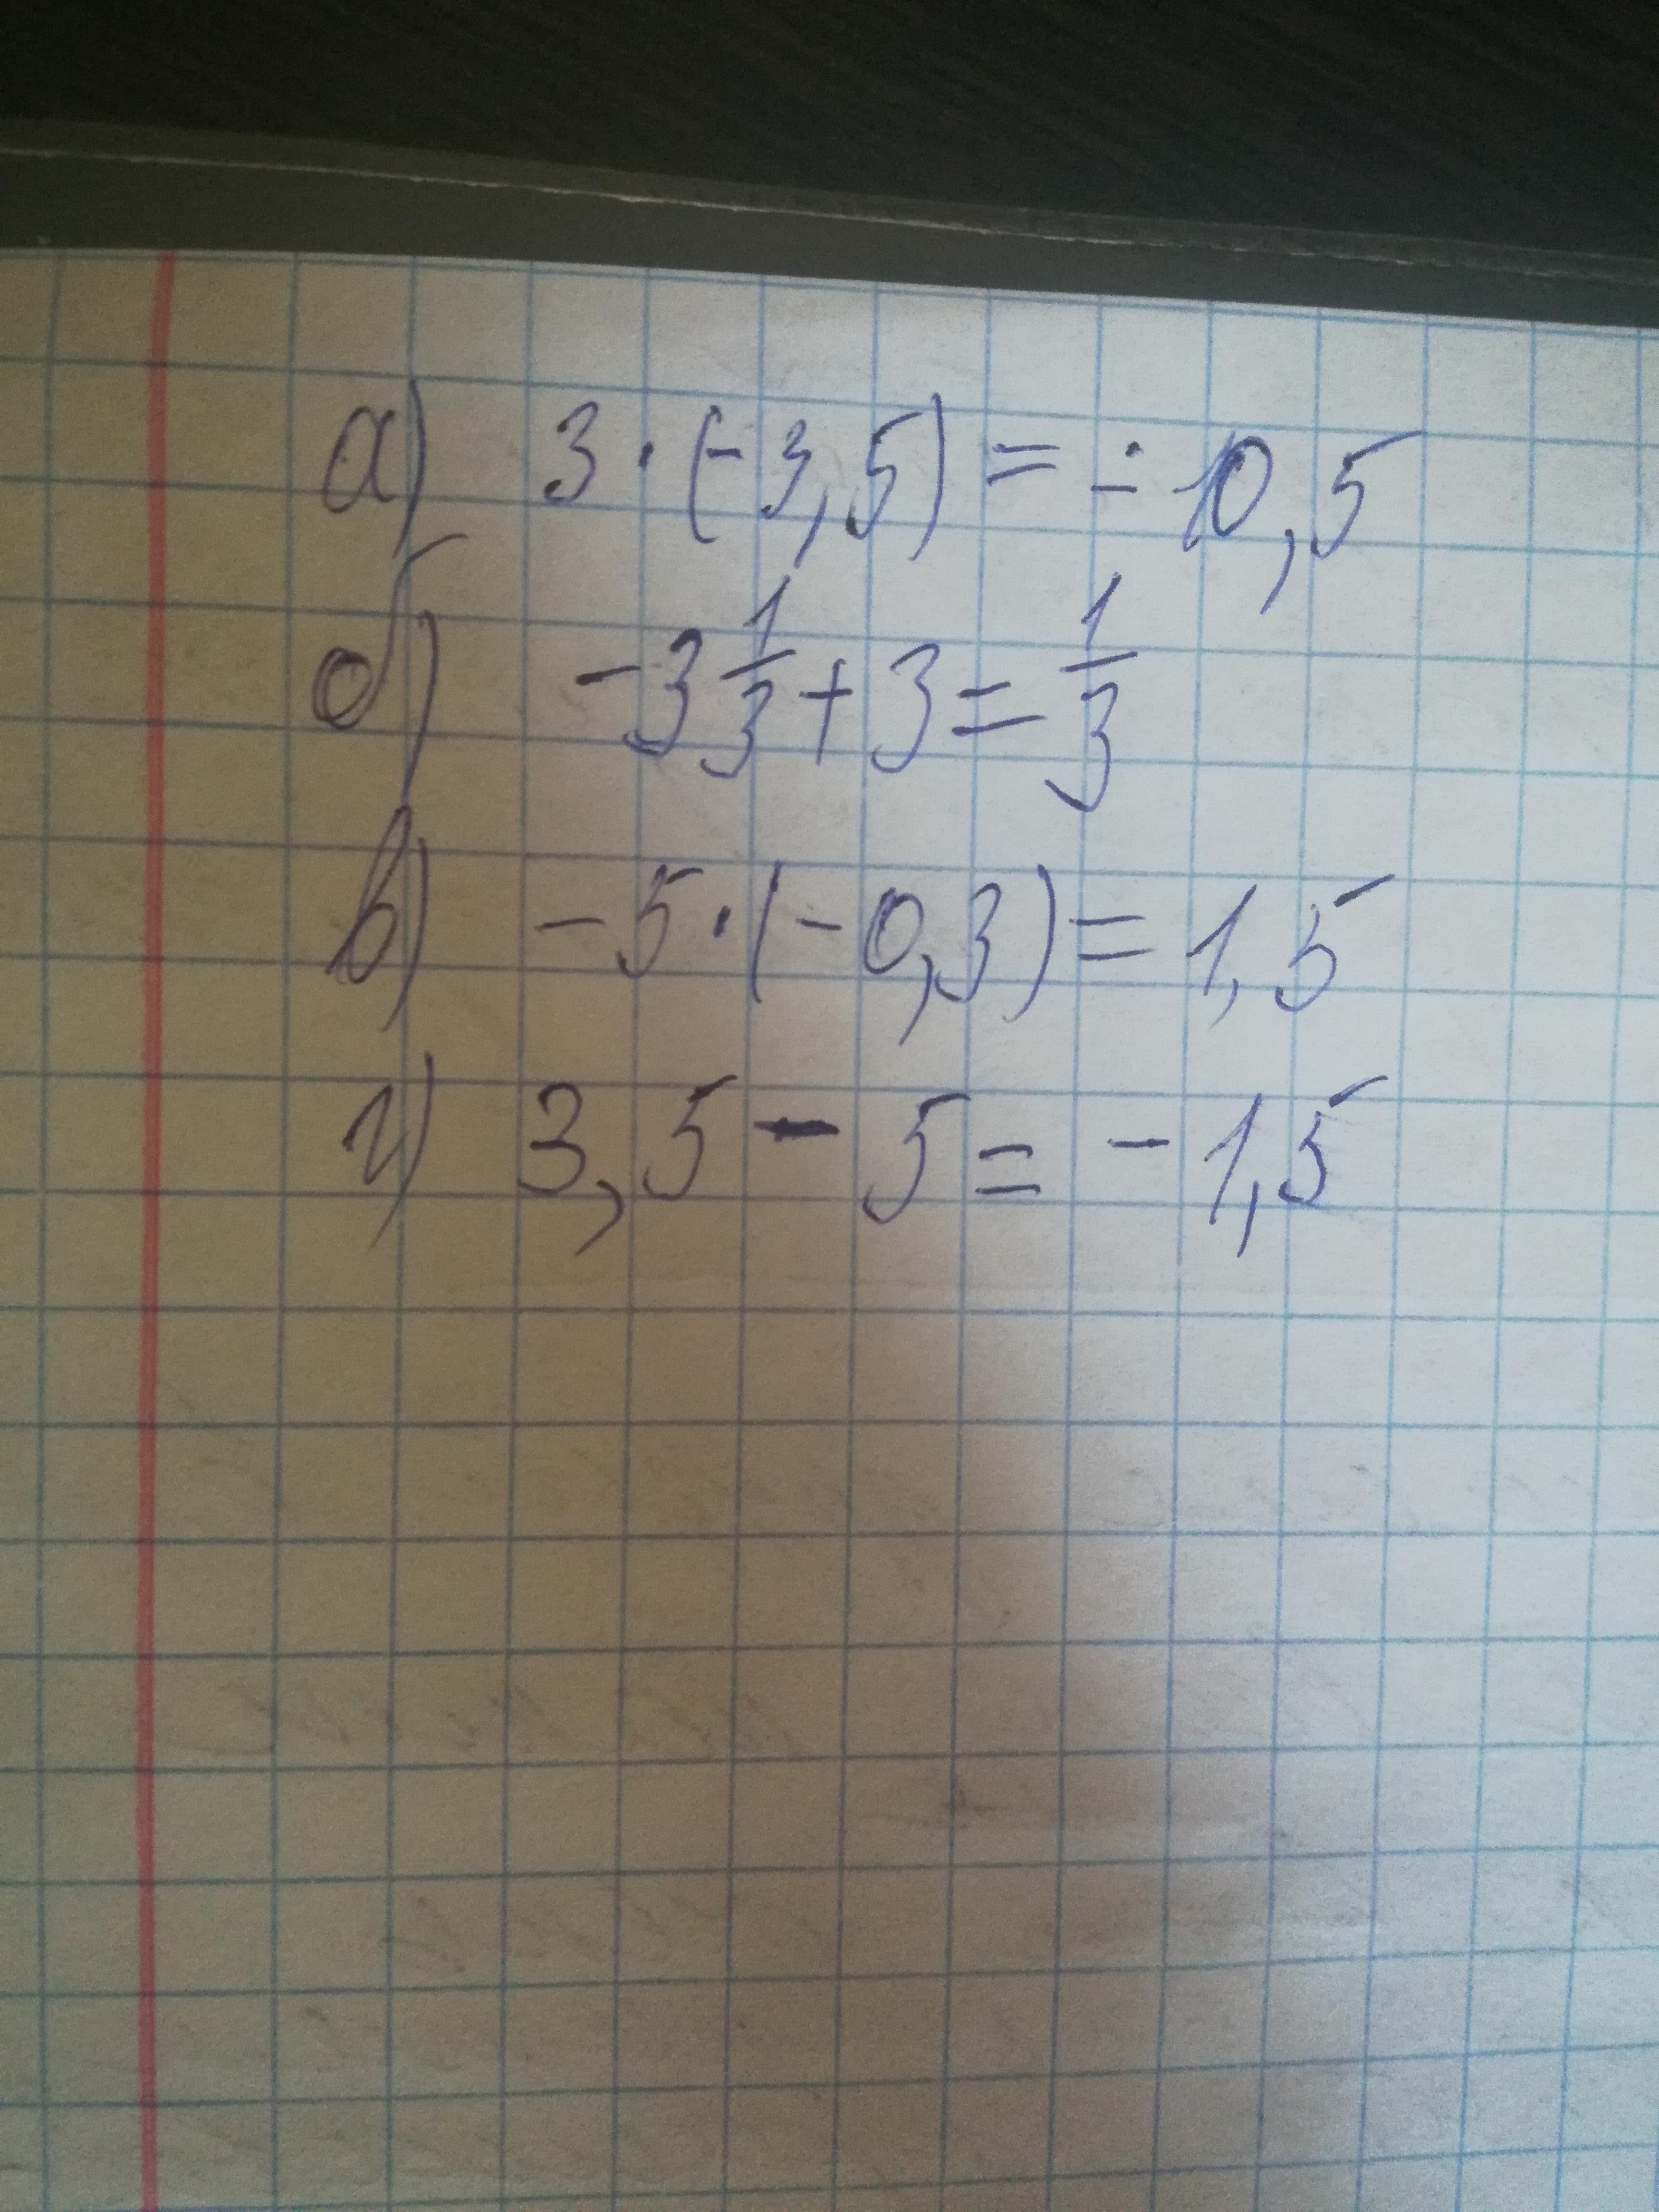 а) 3 · (-3,5) = - 10,5
б) -3 1/3 + 3 = 1/3
в) -5 · (-0,3) = 1,5
г) 3,5 - 5 = - 1,5